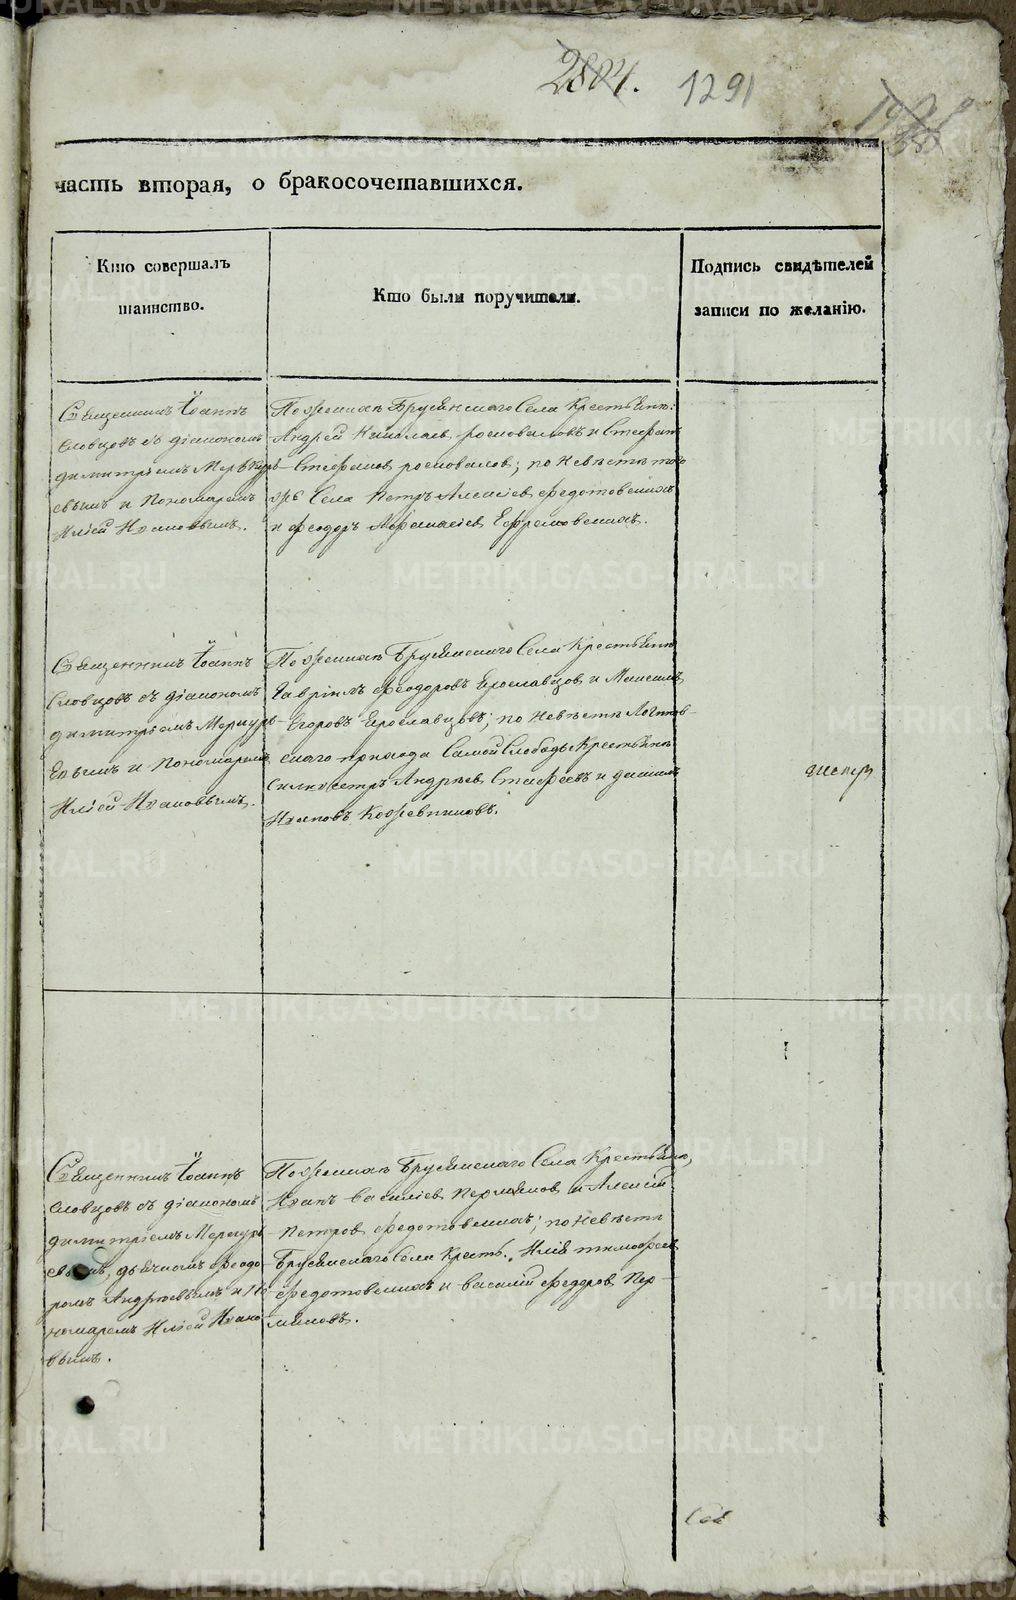 2804. 1291
часть вторая, о бракосочетавшихся.
Кто совершалъ
таинство.
Кто были поручители.
Подпись свидѣтелей
записи по желанію.
Священникъ Іоаннъ
Словцовъ съ діакономъ
димитріемъ Меркурь-
евымъ и Пономаремъ
Иліей Ивановымъ.
По женихѣ Бруснскаго Села Крестьяне:
Андрей Николаевъ и Стефанъ
Стефановъ; по Невѣстѣ того
жъ Села Петръ Алексіевъ Федотовскихъ
и феодоръ Афанасіевъ Ефремовскихъ.
Священникъ Іоаннъ
Словцовъ съ діакономъ
димитріемъ Меркурь-
Евымъ и Пономаремъ
Иліей Ивановымъ.
По женихѣ Бруснскаго Села Крестьяне
Гавріилъ Феодоровъ Ерославцов и Максимъ
Егоровъ Ерославцовъ; по Невѣстѣ Логинов-
скаго прихода Самой Слободы Крестьяне
Силивестръ Андреев и данилъ
Ивановъ Кожевниковъ.
Священникъ Іоаннъ
Словцовъ съ діакономъ
димитріемъ Меркурь-
евымъ, дьячкомъ феодо-
ромъ Андреевымъ и По-
номаремъ Иліей Ивано-
вымъ.
По женихѣ Бруснскаго Села Крестьяне,
Иванъ Василіев Пермяков и Алексій
Петров Федотовскихъ; по Невѣстѣ
Бруснскаго Села Кресть. Илія тимофеев
Федотовскихъ и василій федоров Пер-
мяковъ.
METRIKI.GASO-URAL.RU